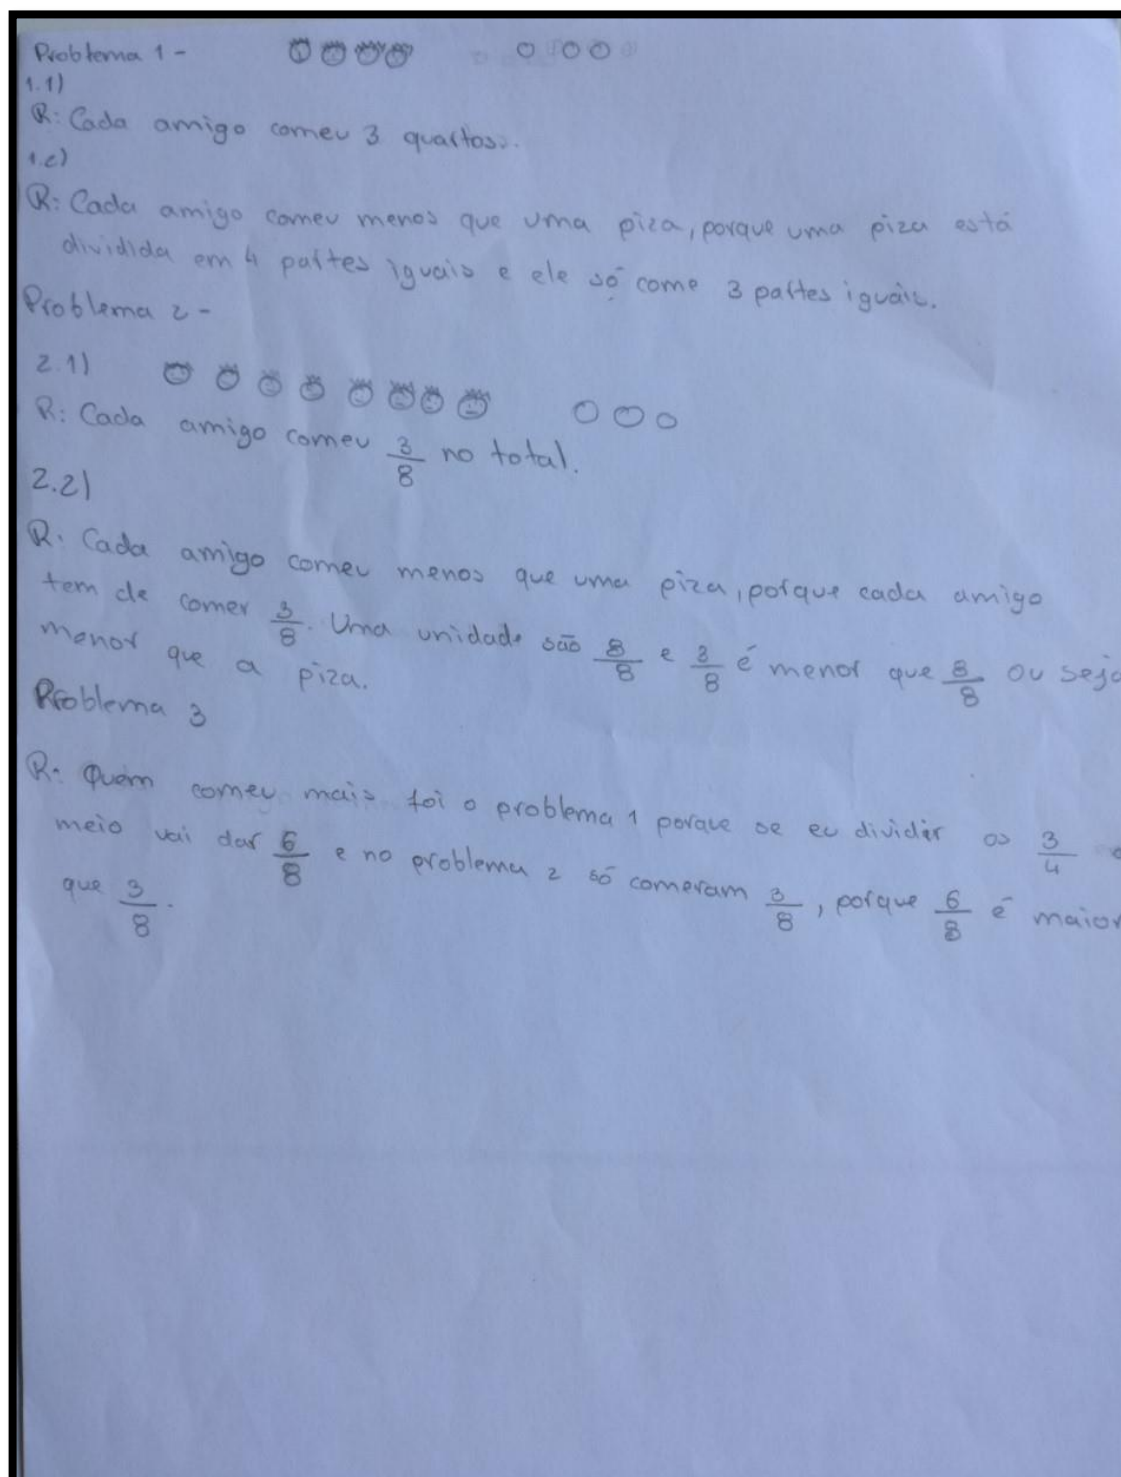 Problema 1 -
1.1)
R: Cada amigo comeu 3 quartos.
1.2)
R: Cada amigo comeu menos que uma piza, porque uma piza está
dividida em 4 partes iguais e ele só come 3 partes iguais.
Problema 2 -
2.1)
R: Cada amigo comeu 3/8 no total.
2.2)
R: Cada amigo comeu menos que uma piza, porque cada amigo
tem de comer 3/8. Uma unidade são 8/8 e 3/8 é menor que 8/8 ou seja
menor que a piza.
Problema 3
R: Quem comeu mais foi o problema 1 porque se eu dividir os 3/4
meio vai dar 6/8 e no problema 2 só comeram 3/8, porque 6/8 é maior
que 3/8.